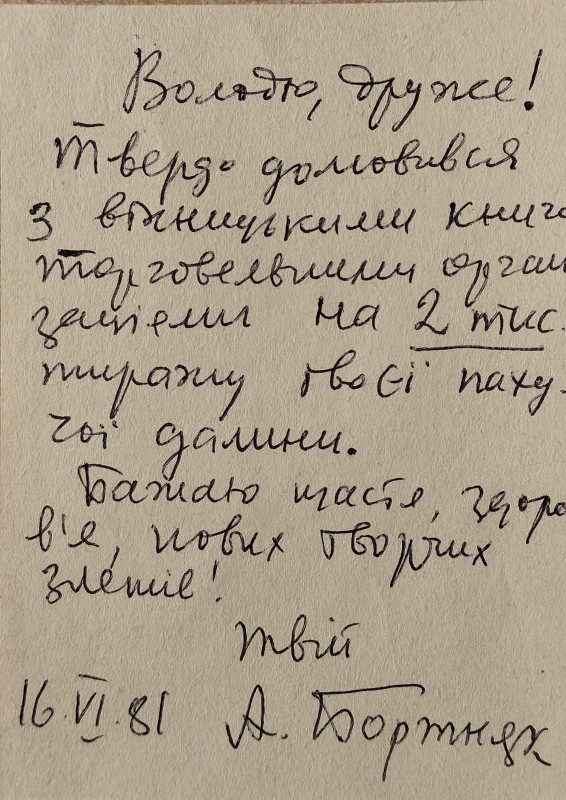 Володю, друже!
Твердо домовився
з вінницькими книго
торговельними органі
заціями на 2 тис.
тиражу твоєї паху-
чої далини.
Бажаю щастя, здоро
в'я, нових творчих
злетів!
Твій
16.VI.81 А. Бортняк